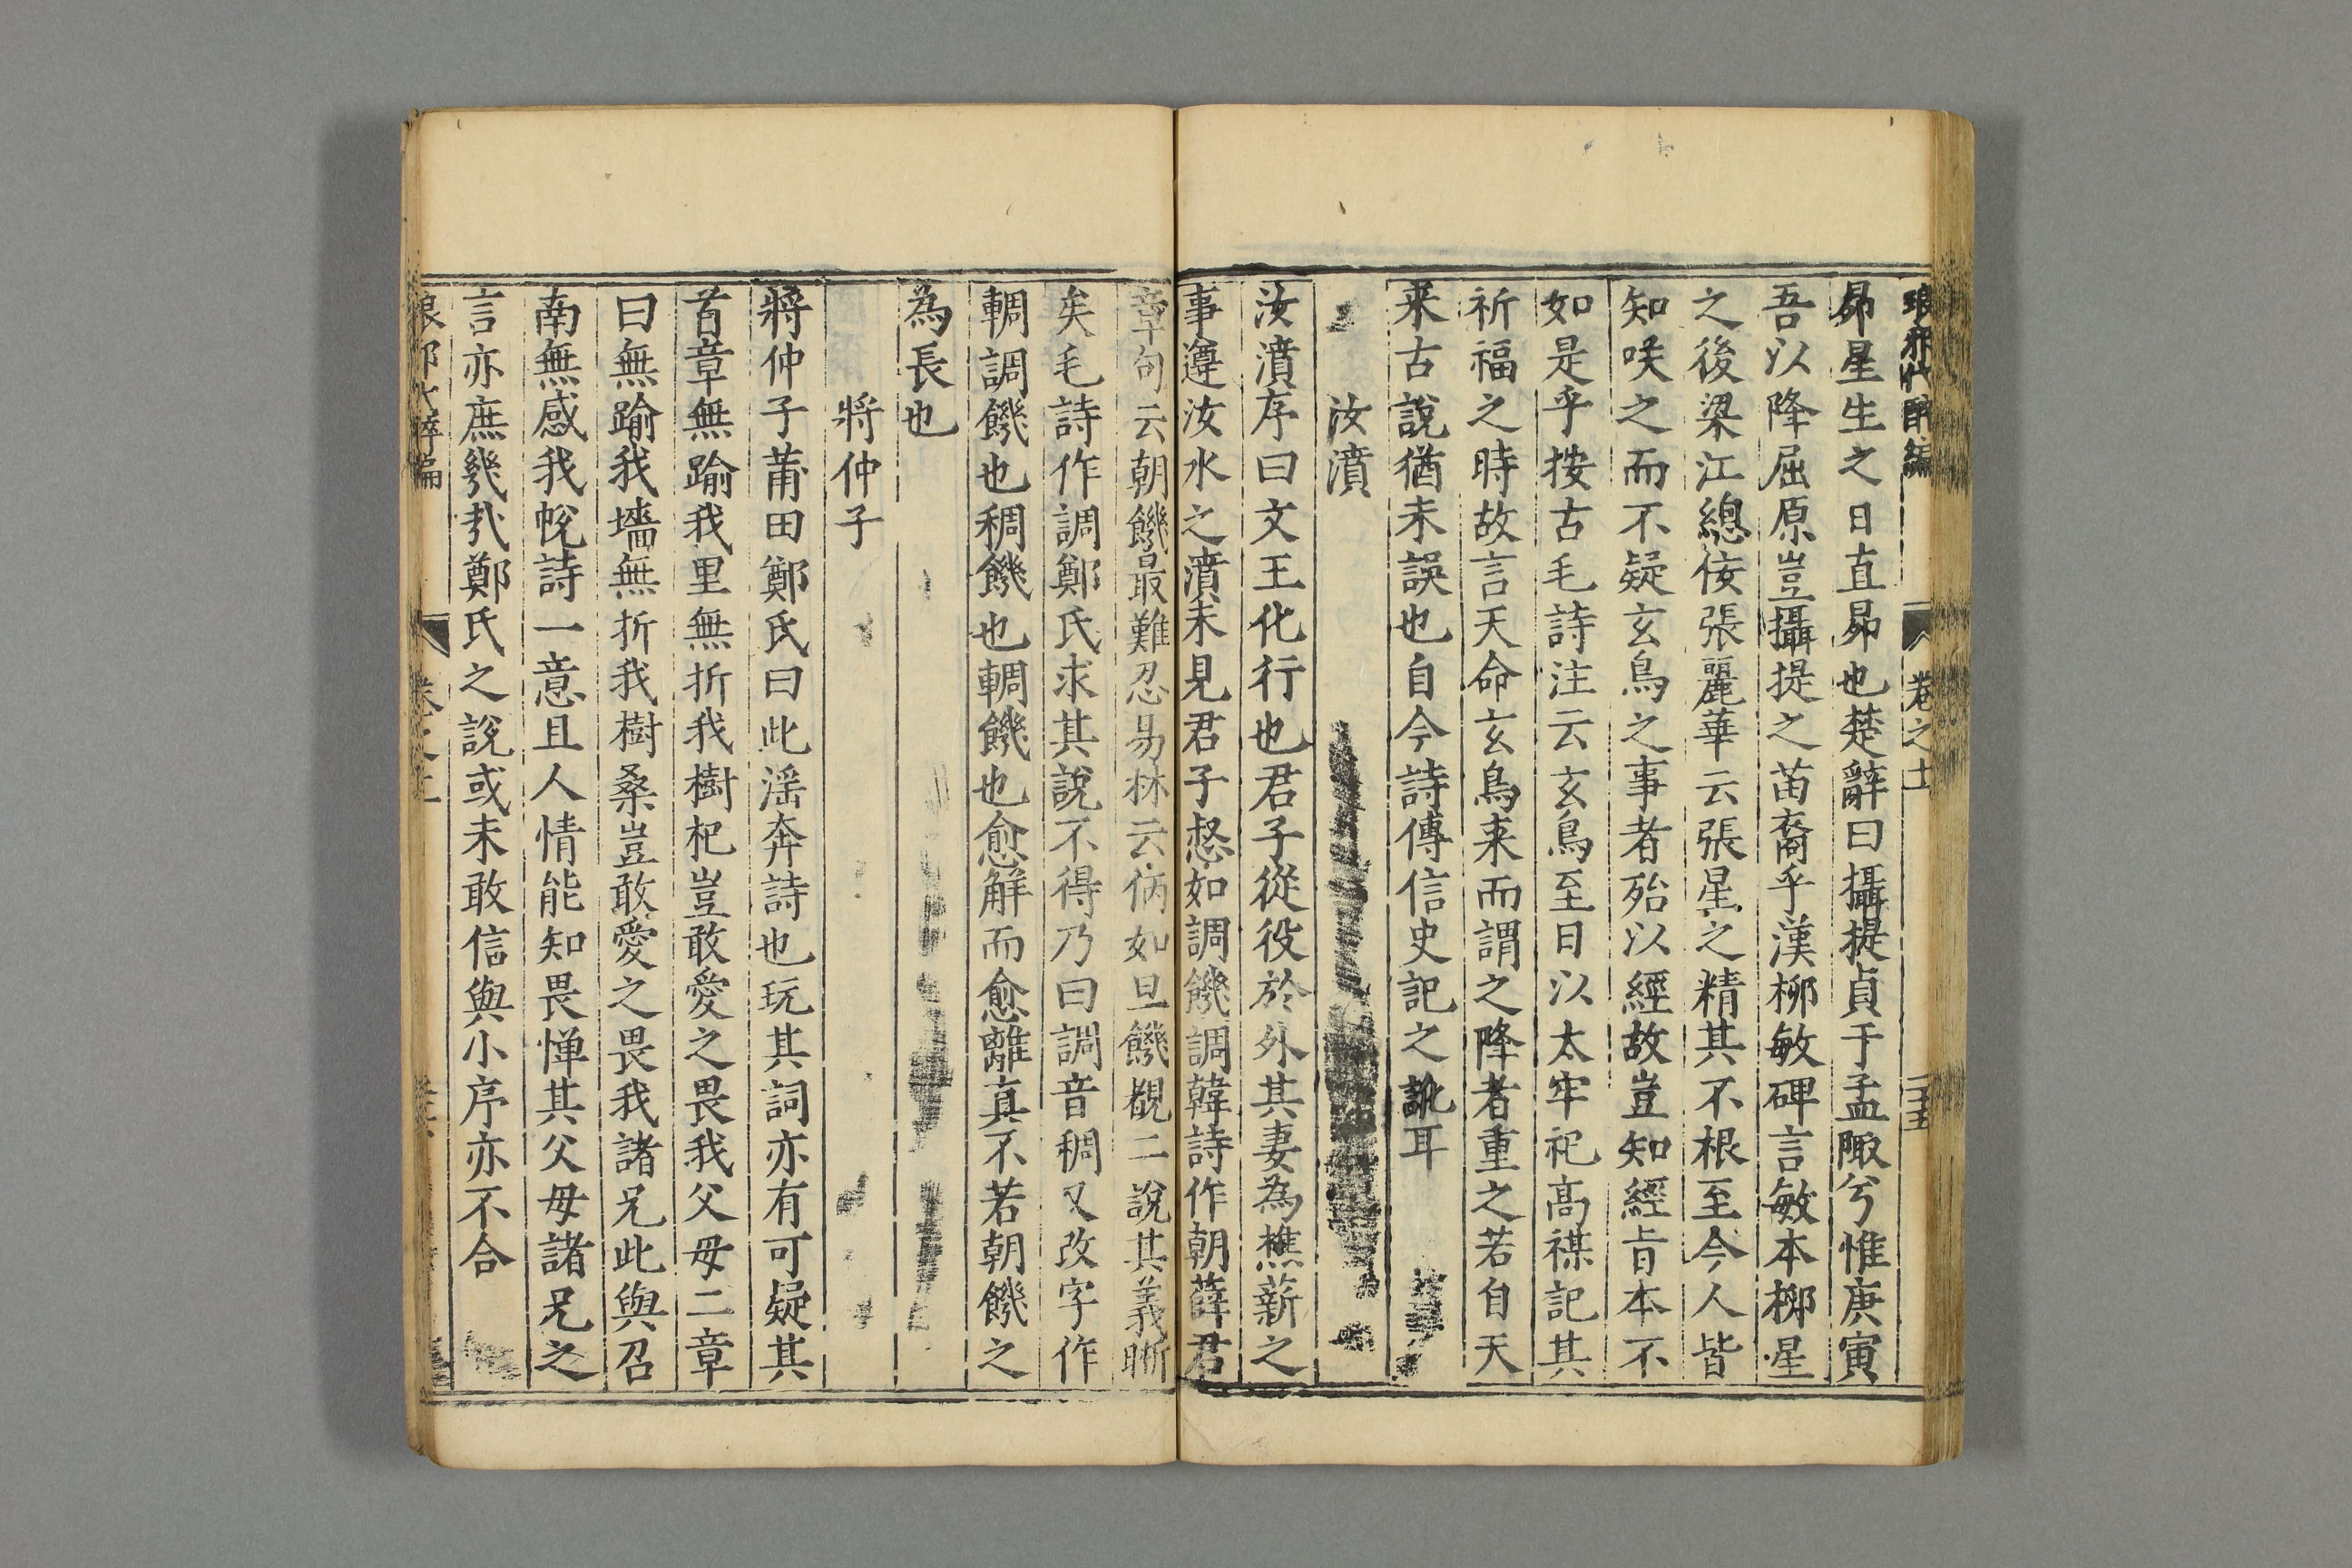 琅邪代醉編 卷之十 二十五
昴星生之日直昴也楚辭曰攝提貞于孟陬兮惟庚寅
吾以降屈原豈攝提之苗裔乎漢柳敏碑言敏本柳星
之後梁江總侫張麗華云張星之精其不根至今人皆
知咲之而不疑玄鳥之事者殆以經故豈知經旨本不
如是乎按古毛詩注云玄鳥至日以太牢祀高禖記其
祈福之時故言天命玄鳥来而謂之降者重之若自天
来古說猶未誤也自今詩傳信史記之訛耳
汝濆
汝濆序曰文王化行也君子從役於外其妻為樵薪之
事遵汝水之濆未見君子惄如調饑調韓詩作朝薛君
章句云朝饑最難忍易林云㑂如旦饑觀二說其義晣
矣毛詩作調鄭氏求其說不得乃曰調音稠又改字作
輖調饑也稠饑也輖饑也愈解而愈離真不若朝饑之
為長也
將仲子
將仲子莆田鄭氏曰此滛奔詩也玩其詞亦有可疑其
首章無踰我里無折我樹杞豈敢愛之畏我父母二章
曰無踰我墻無折我樹桑豈敢愛之畏我諸兄此與召
南無感我帨詩一意且人情能知畏惮其父母諸兄之
言亦庶㡬㢤鄭氏之說或未敢信與小序亦不合